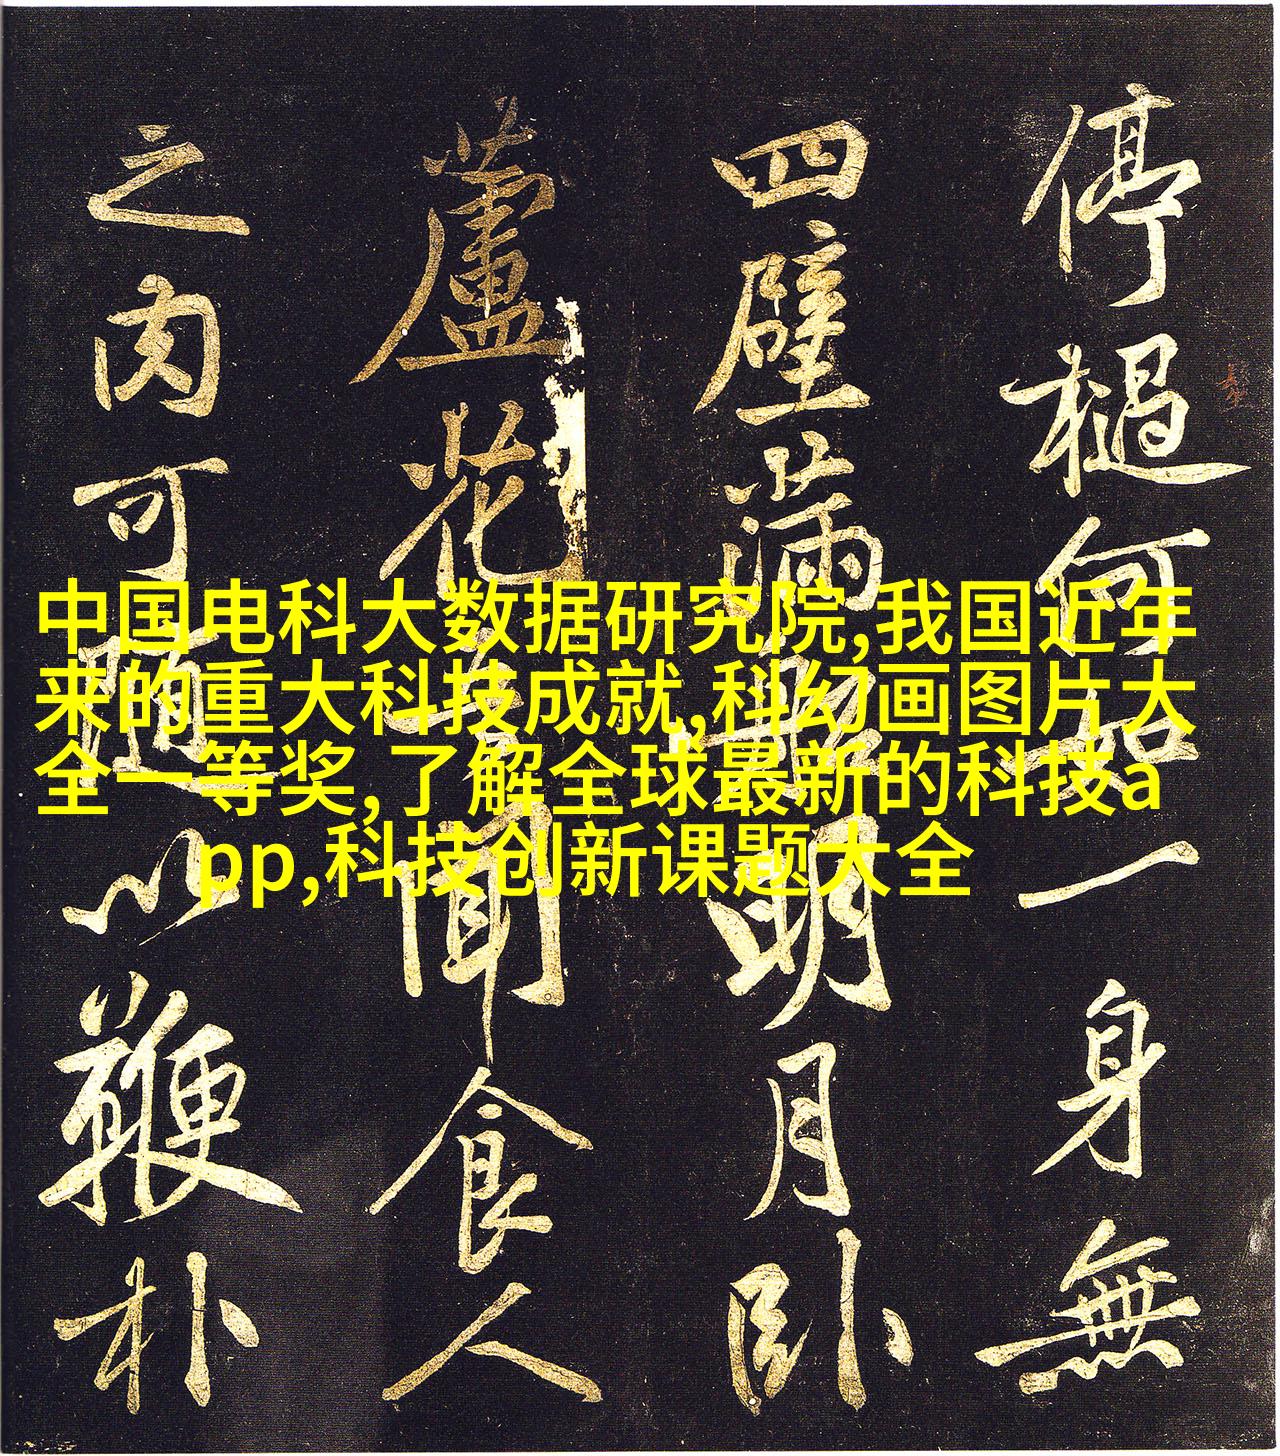 停檛何如一身無
四壁滿船明月卧
蘆花吾聞食人
之肉可隨以鞭朴
中国电科大数据研究院,我国近年
来的重大科技成就,科幻画图片大
全一等奖,了解全球最新的科技a
pp,科技创新课题大全